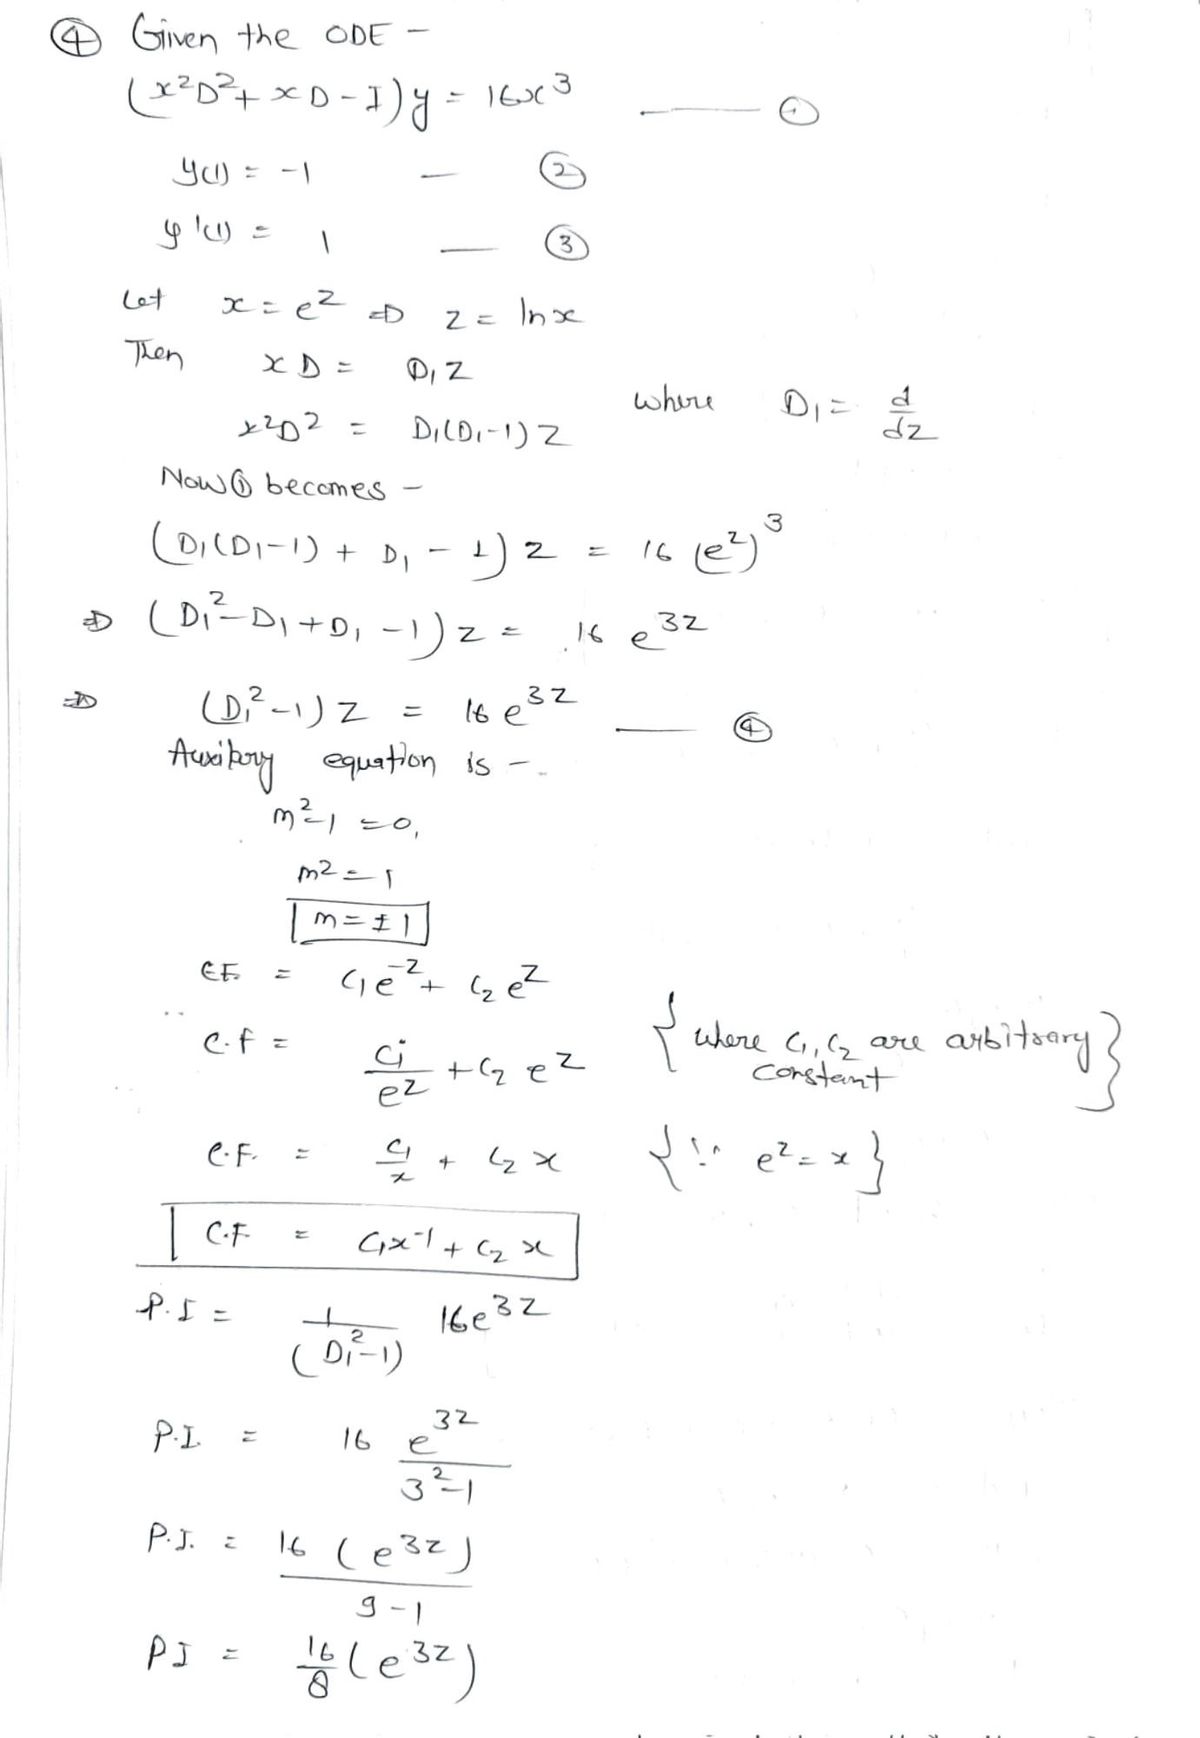 ④ Given the ODE -
(x²D² + xD - I)y = 16x³ —— ①
y(1) = -1 — ②
y'(1) = 1 — ③
Let x = e^z ⇒ z = ln x
Then xD = D₁z
x²D² = D₁(D₁-1)z where D₁ = d/dz
Now ① becomes -
(D₁(D₁-1) + D₁ - 1)z = 16(e^z)³
⇒ (D₁² - D₁ + D₁ - 1)z = 16e^3z
⇒ (D₁² - 1)z = 16e^3z —— ④
Auxilary equation is -
m² - 1 = 0,
m² = 1
m = ±1
C.F. = C₁e^-z + C₂e^z
C.f = C₁/e^z + C₂e^z {where C₁, C₂ are arbitrary constant}
C.F. = C₁/x + C₂x {∵ e^z = x}
C.F = C₁x⁻¹ + C₂x
P.I = 1/(D₁² - 1) 16e^3z
P.I. = 16 e^3z/(3² - 1)
P.I. = 16(e^3z)/(9 - 1)
PI = 16/8 (e^3z)